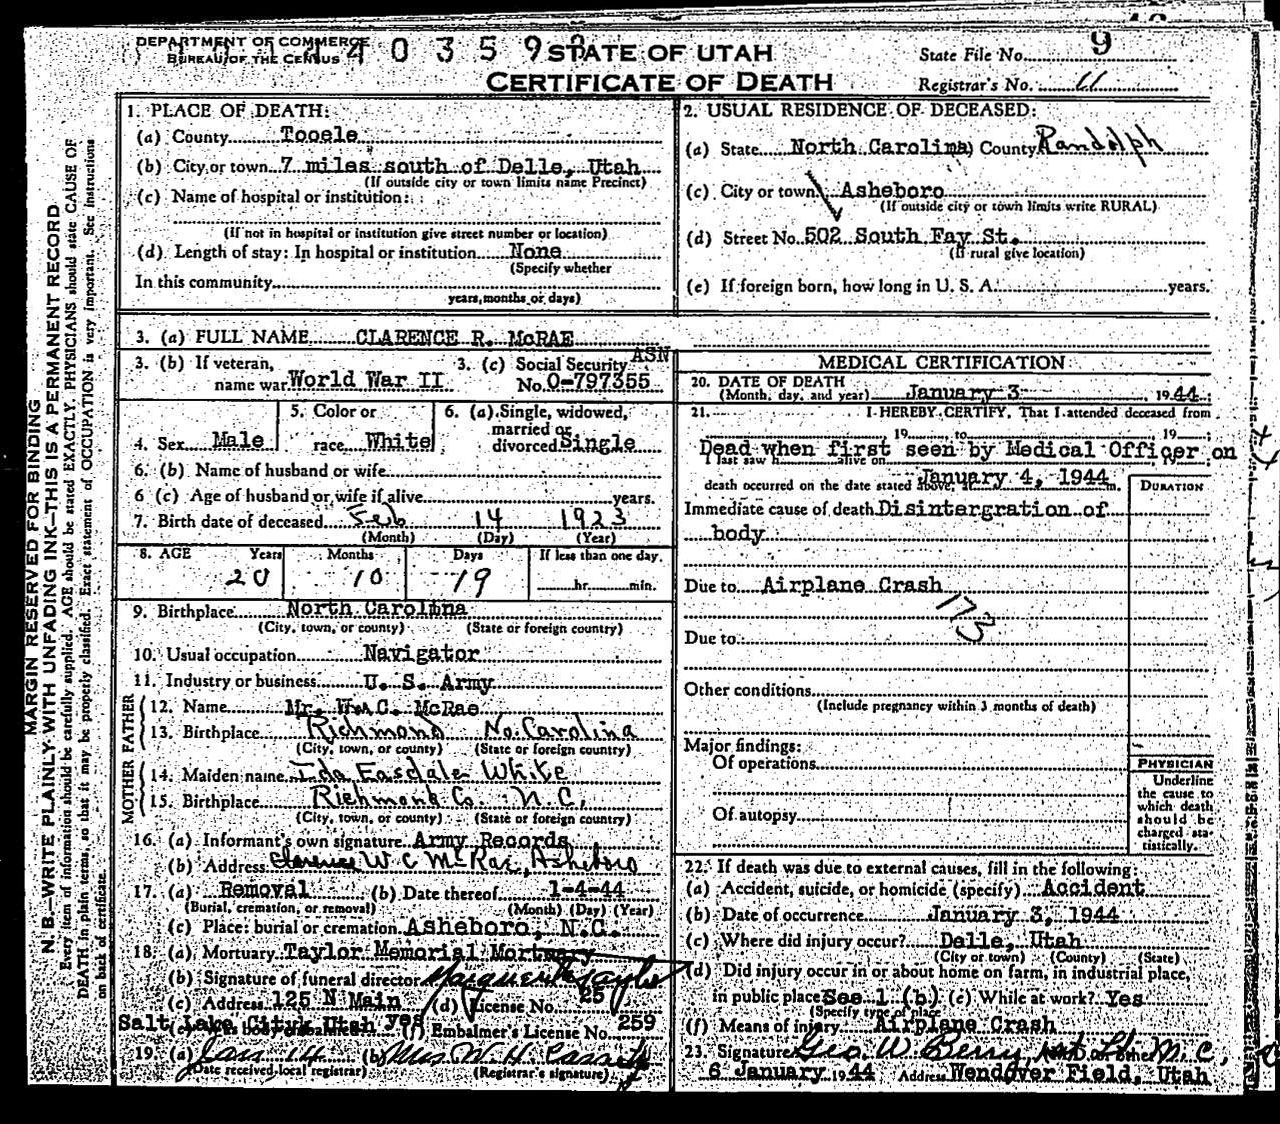 DEPARTMENT OF COMMERCE
BUREAU OF THE CENSUS
4 0 3 5 9
STATE OF UTAH
CERTIFICATE OF DEATH
State File No. 9
Registrar's No. 11
MARGIN RESERVED FOR BINDING
N. B.—WRITE PLAINLY WITH UNFADING INK—THIS IS A PERMANENT RECORD
Every item of information should be carefully supplied. AGE should be stated EXACTLY. PHYSICIANS should state CAUSE OF
DEATH in plain terms, so that it may be properly classified. Exact statement of OCCUPATION is very important. See Instructions
on back of certificate.
1. PLACE OF DEATH:
(a) County Tooele
(b) City or town 7 miles south of Delle, Utah
(If outside city or town limits name Precinct)
(c) Name of hospital or institution:
(If not in hospital or institution give street number or location)
(d) Length of stay: In hospital or institution None
(Specify whether
In this community
years, months or days)
2. USUAL RESIDENCE OF DECEASED:
(a) State North Carolina County Randolph
(c) City or town Asheboro
(If outside city or town limits write RURAL)
(d) Street No. 502 South Fay St.
(If rural give location)
(e) If foreign born, how long in U. S. A. years.
3. (a) FULL NAME CLARENCE R. McRAE
3. (b) If veteran, name war World War II
3. (c) Social Security ASN
No. O-797355
4. Sex Male
5. Color or race White
6. (a) Single, widowed, married or divorced Single
6. (b) Name of husband or wife
6 (c) Age of husband or wife if alive years.
7. Birth date of deceased Feb 14 1923
(Month) (Day) (Year)
8. AGE Years Months Days If less than one day.
20 10 19 hr. min.
9. Birthplace North Carolina
(City, town, or county) (State or foreign country)
10. Usual occupation Navigator
11. Industry or business U. S. Army
FATHER
12. Name Mr. Wm C. McRae
13. Birthplace Richmond No. Carolina
(City, town, or county) (State or foreign country)
MOTHER
14. Maiden name Ida Easdale White
15. Birthplace Richmond Co. N.C.
(City, town, or county) (State or foreign country)
16. (a) Informant's own signature Army Records
(b) Address Clarence W C McRae, Asheboro
17. (a) Removal (b) Date thereof 1-4-44
(Burial, cremation, or removal) (Month) (Day) (Year)
(c) Place: burial or cremation Asheboro, N.C.
18. (a) Mortuary Taylor Memorial Mortuary
(b) Signature of funeral director Marguerite Taylor
(c) Address 125 N Main (d) License No. 25
Salt Lake City, Utah yes (f) Embalmer's License No. 259
19. (a) Jan 14 (b) Mrs. W. H.
(Date received local registrar) (Registrar's signature)
MEDICAL CERTIFICATION
20. DATE OF DEATH
(Month, day, and year) January 3 1944
21. I HEREBY CERTIFY, That I attended deceased from
19 to 19
Dead when first seen by Medical Officer on
I last saw h alive on 19
death occurred on the date stated above, at m. January 4, 1944
DURATION
Immediate cause of death Disintergration of
body
Due to Airplane Crash
173
Due to
Other conditions
(Include pregnancy within 3 months of death)
Major findings:
Of operations
Of autopsy
PHYSICIAN
Underline
the cause to
which death
should be
charged sta-
tistically.
22. If death was due to external causes, fill in the following:
(a) Accident, suicide, or homicide (specify) Accident
(b) Date of occurrence January 3, 1944
(c) Where did injury occur? Delle, Utah
(City or town) (County) (State)
(d) Did injury occur in or about home on farm, in industrial place,
in public place See 1 (b) (e) While at work? Yes
(Specify type of place)
(f) Means of injury Airplane Crash
23. Signature Geo. W. Berry, 1st Lt. M. C.
6 January 1944 Address Wendover Field, Utah